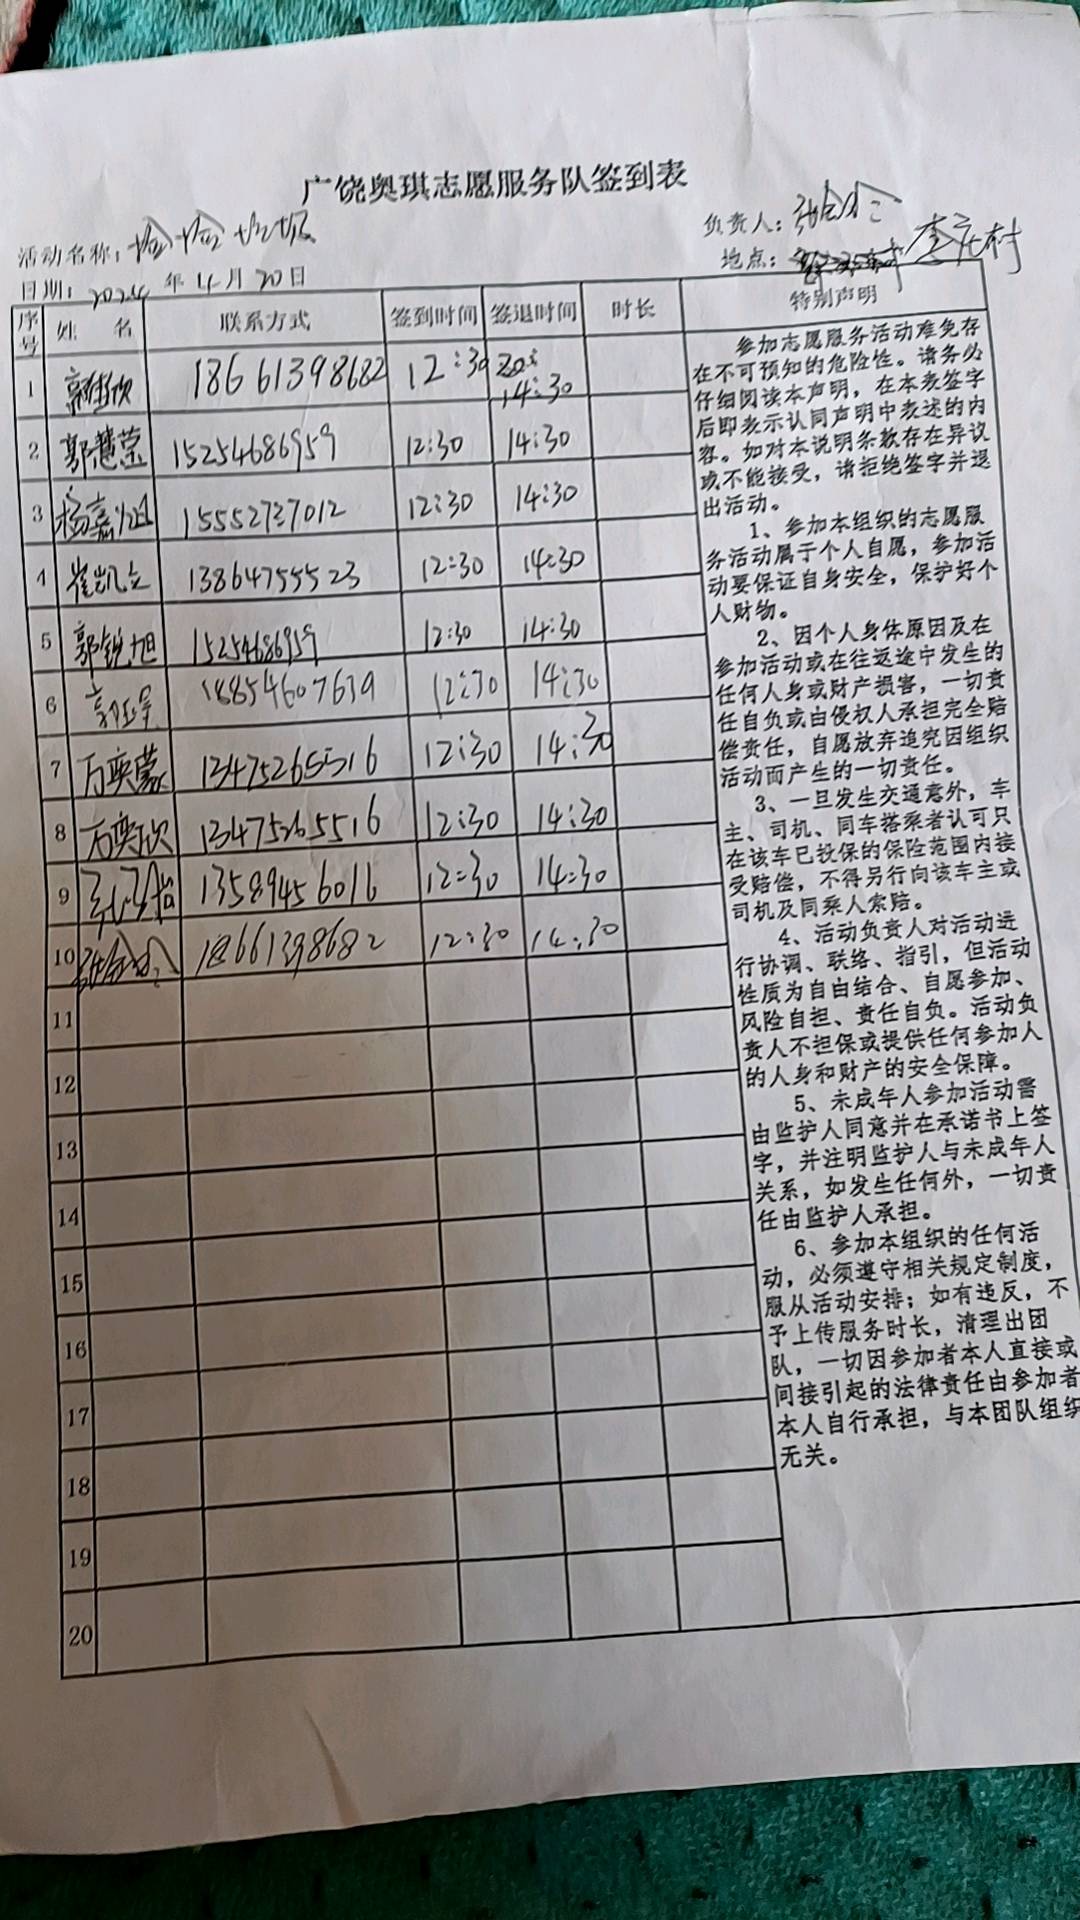 广饶奥琪志愿服务队签到表
活动名称：捡捡垃圾 负责人：
日期：2024年4月20日 地点：李庄村
序号 姓名 联系方式 签到时间 签退时间 时长 特别声明
1 18661398682 12:30 14:30
2 郭慧莹 15254686959 12:30 14:30
3 杨嘉 15552737012 12:30 14:30
4 崔凯立 13864755523 12:30 14:30
5 郭锐旭 15254686959 12:30 14:30
6 18854607639 12:30 14:30
7 万奕蒙 13475265516 12:30 14:30
8 万奕欣 13475265516 12:30 14:30
9 13589456016 12:30 14:30
10 18661398682 12:30 14:30
11
12
13
14
15
16
17
18
19
20
参加志愿服务活动难免存
在不可预知的危险性。请务必
仔细阅读本声明，在本表签字
后即表示认同声明中表述的内
容。如对本说明条款存在异议
或不能接受，请拒绝签字并退
出活动。
1、参加本组织的志愿服
务活动属于个人自愿，参加活
动要保证自身安全，保护好个
人财物。
2、因个人身体原因及在
参加活动或在往返途中发生的
任何人身或财产损害，一切责
任自负或由侵权人承担完全赔
偿责任，自愿放弃追究因组织
活动而产生的一切责任。
3、一旦发生交通意外，车
主、司机、同车搭乘者认可只
在该车已投保的保险范围内接
受赔偿，不得另行向该车主或
司机及同乘人索赔。
4、活动负责人对活动进
行协调、联络、指引，但活动
性质为自由结合、自愿参加、
风险自担、责任自负。活动负
责人不担保或提供任何参加人
的人身和财产的安全保障。
5、未成年人参加活动需
由监护人同意并在承诺书上签
字，并注明监护人与未成年人
关系，如发生任何外，一切责
任由监护人承担。
6、参加本组织的任何活
动，必须遵守相关规定制度，
服从活动安排；如有违反，不
予上传服务时长，清理出团
队，一切因参加者本人直接或
间接引起的法律责任由参加者
本人自行承担，与本团队组织
无关。